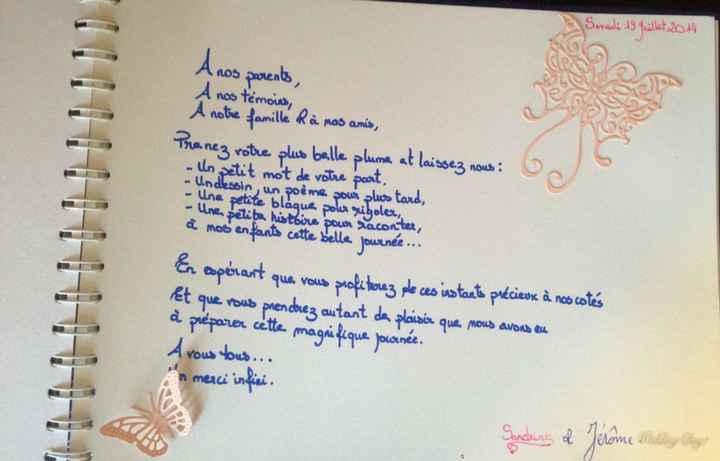 Samedi 19 Juillet 2014
A nos parents,
A nos témoins,
A notre famille & à nos amis,
Prenez votre plus belle plume et laissez nous :
- Un petit mot de votre part.
- Un dessin, un poème pour plus tard,
- Une petite blague pour rigoler,
- Une petite histoire pour raconter,
à nos enfants cette belle journée...
En espérant que vous profiterez de ces instants précieux à nos cotés
Et que vous prendrez autant de plaisir que nous avons eu
à préparer cette magnifique journée.
A vous tous...
Un merci infini.
Sandrine & Jérôme